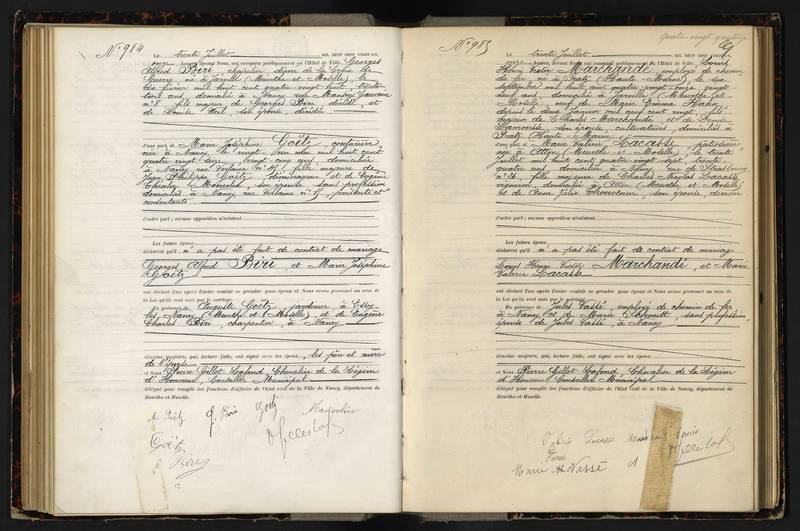 N° 984
Le trente Juillet MIL NEUF CENT VINGT-UN,
onze heures, devant Nous, ont comparu publiquement en l'Hôtel de Ville, Georges
Alfred Biri, chapelier, décoré de la Croix de
Guerre, né à Jarville (Meurthe et Moselle), le
février mil huit cent quatre vingt huit, trente
trois ans, domicilié à Nancy, rue
n° 8, fils majeur de Georges Biri, et
de Louise Weil, son épouse, décédée
D'une part et Marie Joséphine Goëtz, couturière,
née à Nancy, le vingt un mai mil huit cent
quatre vingt seize, vingt cinq ans, domiciliée
à Nancy, rue Verlaine n° 15, fille majeure de
Jean Philippe Goëtz, déménageur et de Eugénie
son épouse sans profession
domiciliés à Nancy, rue Verlaine n° 15, présents et
consentants
d'autre part; aucune opposition n'existant
Les futurs époux
déclarent qu'il n'a pas été fait de contrat de mariage
Georges Alfred Biri, et Marie Joséphine
Goëtz
ont déclaré l'un après l'autre vouloir se prendre pour époux et Nous avons prononcé au nom de
la Loi qu'ils sont unis par le mariage.
En présence de Auguste Goëtz, jardinier à Essey-
les-Nancy (Meurthe et Moselle), et de Eugène
Charles Biri, charpentier, à Nancy
témoins majeurs, qui, lecture faite, ont signé avec les époux, les père et mère
de l'épouse
et Nous Pierre Gillet Lafond, Chevalier de la Légion
d'Honneur, Conseiller Municipal
délégué pour remplir les fonctions d'officier de l'Etat civil de la Ville de Nancy, département de
Meurthe-et-Moselle.
G. Biri
Goëtz
Biri
N° 985
Le trente Juillet MIL NEUF CENT VINGT-UN,
onze heures, devant Nous, ont comparu publiquement en l'Hôtel de Ville, Louis
Henri Victor Marchandé, employé de chemin
de fer, né à Pratz (Haute Marne), le dix
septembre mil huit cent quatre vingt onze, vingt
neuf ans, domicilié à Jarville (Meurthe et
Moselle), veuf de Marie Emma Hahn,
depuis le deux Janvier mil neuf cent vingt, fils
majeur de Charles Marchandé, et de
son épouse, cultivateurs, domiciliés à
Pratz (Haute Marne)
D'une part et Marie Valérie Lacasse,
née à Atton (Meurthe et Moselle), le
Juillet mil huit cent quatre vingt sept, trente
quatre ans, domiciliée à Nancy, rue de Strasbourg
n° 26, fille majeure de Charles Nicolas Lacasse
vigneron, domicilié à Atton (Meurthe et Moselle)
et de Anne Julie son épouse, décédée
d'autre part; aucune opposition n'existant
Les futurs époux
déclarent qu'il n'a pas été fait de contrat de mariage
Louis Henri Victor Marchandé, et Marie
Valérie Lacasse
ont déclaré l'un après l'autre vouloir se prendre pour époux et Nous avons prononcé au nom de
la Loi qu'ils sont unis par le mariage.
En présence de Jules Vassé, employé de chemin de fer
à Nancy et de Marie Schmitt, sans profession,
épouse de Jules Vassé, à Nancy
témoins majeurs, qui, lecture faite, ont signé avec les époux,
et Nous Pierre Gillet Lafond, Chevalier de la Légion
d'Honneur Conseiller Municipal
délégué pour remplir les fonctions d'officier de l'Etat civil de la Ville de Nancy, département de
Meurthe-et-Moselle.
Valérie Lacasse Marchandé Louis
Marie Vassé